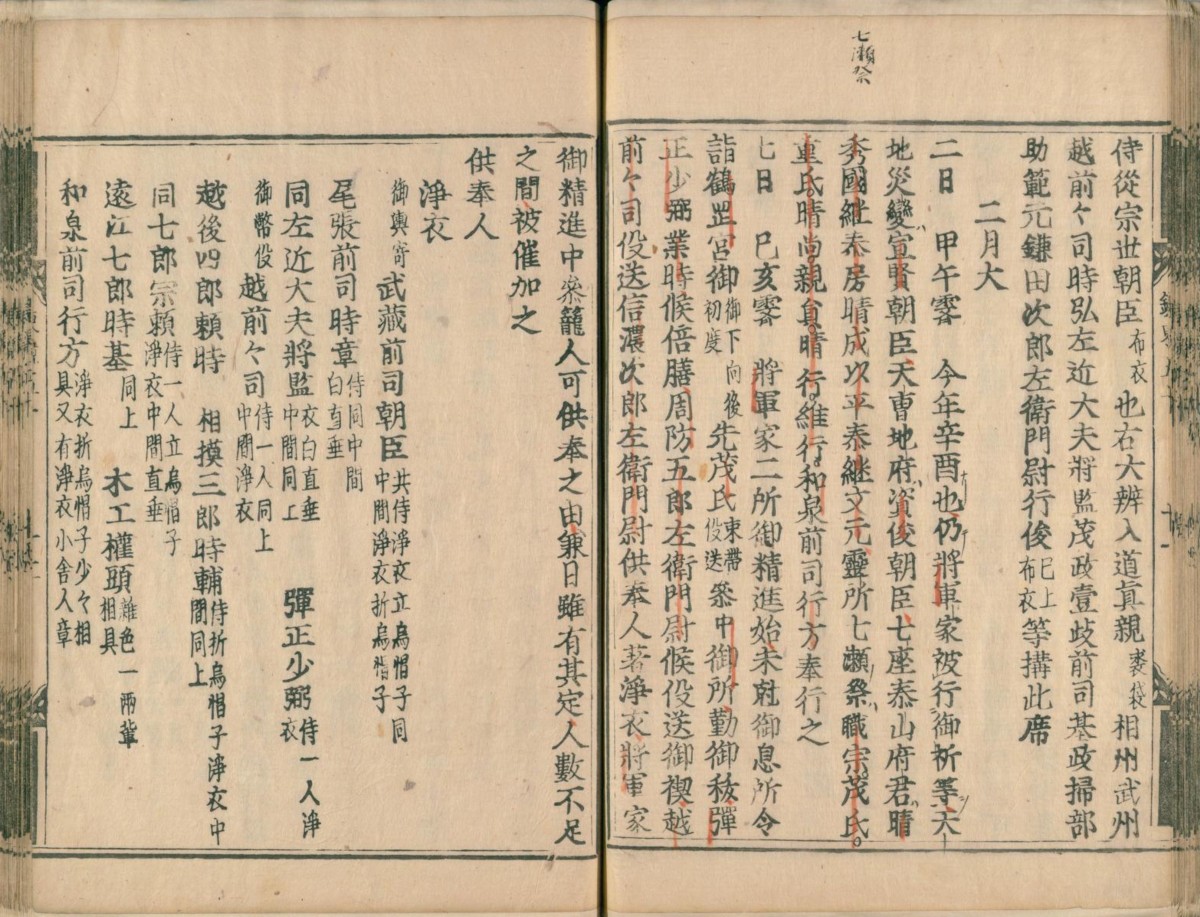 七瀬祭
侍從宗世朝臣布衣也右大辨入道眞親裘袋相州武州
越前々司時弘左近大夫將監茂政壹岐前司基政掃部
助範元鎌田次郎左衛門尉行俊已上布衣等搆此席
二月大
二日　甲午霽　今年辛酉也仍將軍家被行御祈等天
地災變宣賢朝臣天曹地府資俊朝臣七座泰山府君晴
秀國継泰房晴成以平泰継文元靈所七瀬祭職宗茂氏
重氏晴尚親貞晴行維行和泉前司行方奉行之
七日　已亥霽　將軍家二所御精進始未尅御息所令
詣鶴罡宮御初度御下向後先茂氏束帶役送叅中御所勤御秡彈
正少弼業時候倍膳周防五郎左衛門尉候役送御禊越
前々司役送信濃次郎左衛門尉供奉人著淨衣將軍家
御精進中叅籠人可供奉之由兼日雖有其定人數不足
之間被催加之
供奉人
淨衣
御輿寄武藏前司朝臣共侍淨衣立烏帽子同中間淨衣折烏帽子
尾張前司時章侍同中間白直垂
同左近大夫將監衣白直垂中間同上　彈正少弼侍一人淨衣
御幣役越前々司侍一人同上中間淨衣
越後四郎頼時　相摸三郎時輔侍折烏帽子淨衣中間同上
同七郎宗頼侍一人立烏帽子淨衣中間直垂
遠江七郎時基同上　木工權頭雜色一兩輩相具
和泉前司行方淨衣折烏帽子少々相具又有淨衣小舎人章